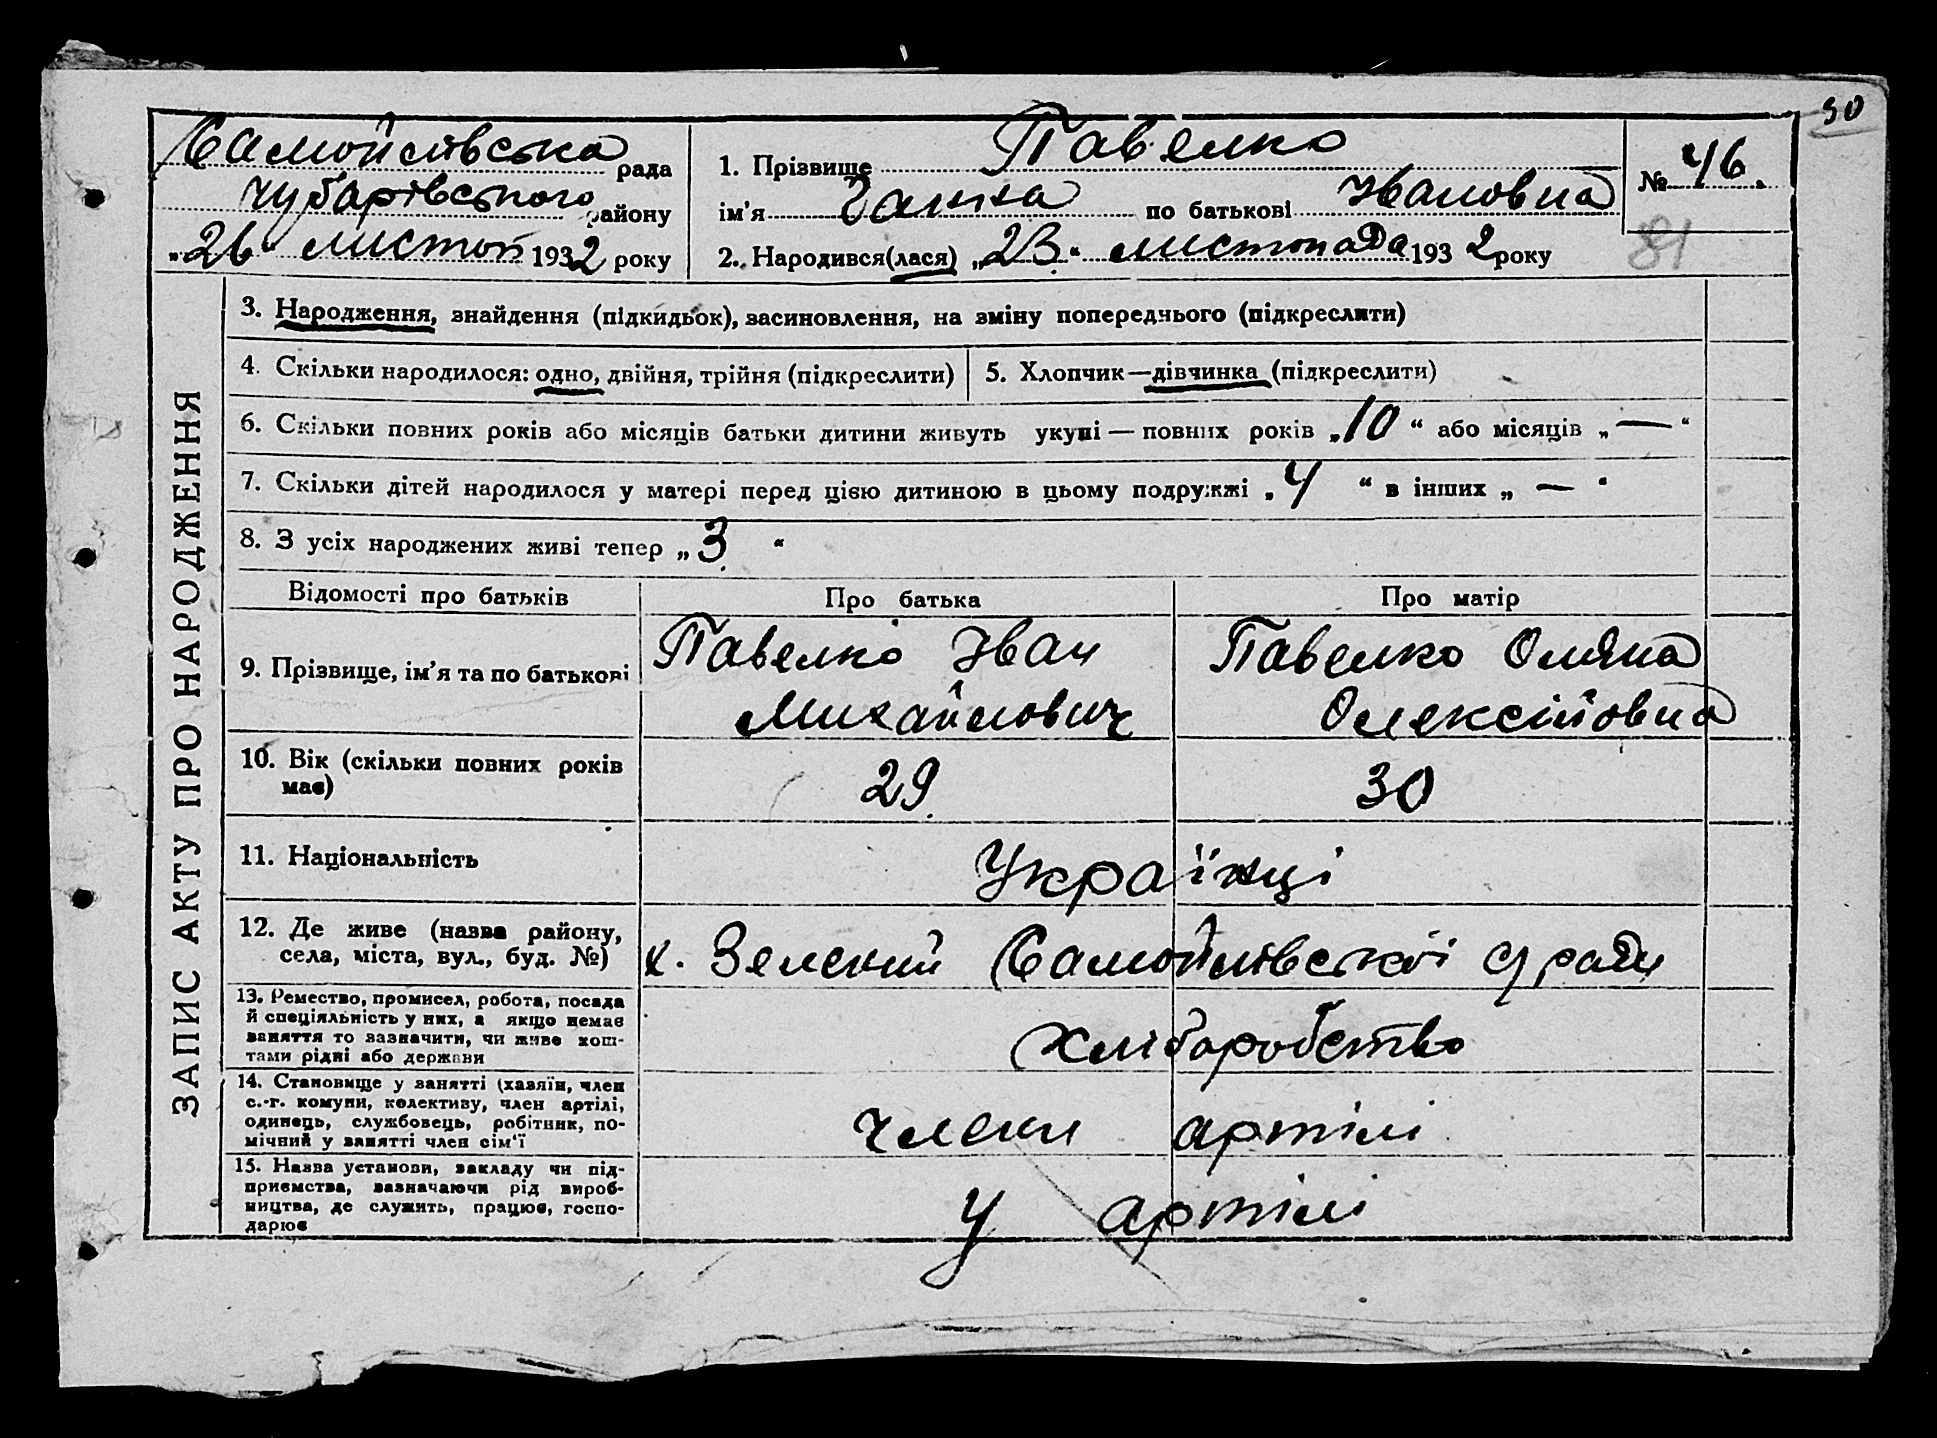 90
Самойлівська рада
Чубарівського району
„26“ листоп 1932 року
1. Прізвище Павелко
ім'я Ганна по батькові Івановна
2. Народився(лася) „23“ листопада 1932 року
№ 46.
81
ЗАПИС АКТУ ПРО НАРОДЖЕННЯ
3. Народження, знайдення (підкидьок), засиновлення, на зміну попереднього (підкреслити)
4. Скільки народилося: одно, двійня, трійня (підкреслити)
5. Хлопчик—дівчинка (підкреслити)
6. Скільки повних років або місяців батьки дитини живуть укупі — повних років „10“ або місяців „—“
7. Скільки дітей народилося у матері перед цією дитиною в цьому подружжі „4“ в інших „—“
8. З усіх народжених живі тепер „3“
Відомості про батьків Про батька Про матір
9. Прізвище, ім'я та по батькові
Павелко Іван
Михайлович
Павелко Оляна
Олексійовна
10. Вік (скільки повних років
має)
29 30
11. Національність
Українці
12. Де живе (назва району,
села, міста, вул., буд. №)
х. Земський Самойлівської с/ради
13. Ремество, промисел, робота, посада
й спеціяльність у них, а якщо немає
заняття то зазначити, чи живе кош-
тами рідні або держави
Хліборобство
14. Становище у занятті (хазяїн, член
с.-г. комуни, колективу, член артілі,
одинець, службовець, робітник, по-
мічний у занятті член сім'ї
члени артілі
15. Назва установи, закладу чи під-
приємства, зазначаючи рід вироб-
ництва, де служить, працює, госпо-
дарює
У артілі